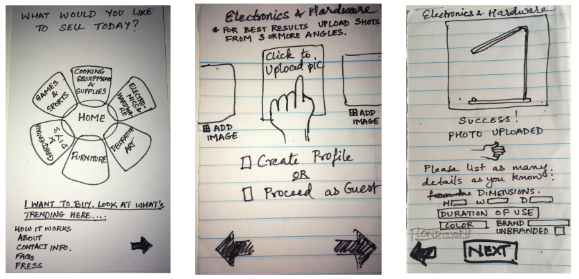 WHAT WOULD YOU LIKE
TO SELL TODAY?
COOKING
EQUIPMENT
&
SUPPLIES
GAMES
&
SPORTS
ELECTRONICS &
HARDWARE
HOME
DECORATIVE
ART
FURNITURE
I WANT TO BUY. LOOK AT WHAT'S
TRENDING HERE....:
HOW IT WORKS
ABOUT
CONTACT INFO.
FAQs
PRESS
Electronics & Hardware
* FOR BEST RESULTS UPLOAD SHOTS
FROM 3 OR MORE ANGLES.
Click to
Upload pic
ADD
IMAGE
ADD
IMAGE
Create Profile
OR
Proceed as Guest
Electronics & Hardware
SUCCESS!
PHOTO UPLOADED
Please list as many
details as you know:
DIMENSIONS.
H W D
DURATION OF USE
COLOR BRAND
CONDITION UNBRANDED
NEXT